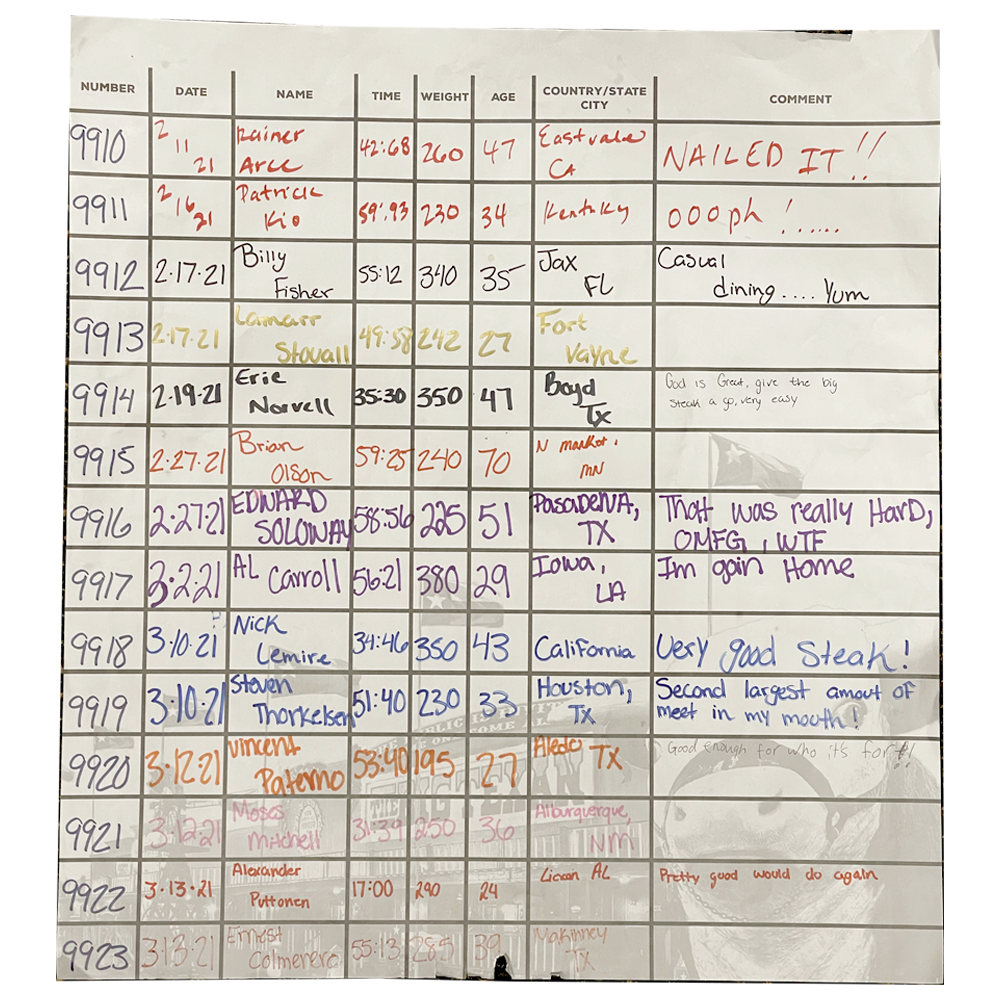 NUMBER DATE NAME TIME WEIGHT AGE COUNTRY/STATE CITY COMMENT
9910 2 11 21 Rainer Arce 42:68 260 47 Eastvale CA NAILED IT!!
9911 2 16 21 Patrick Kio 59:93 230 34 Kentuky OOOph !......
9912 2·17·21 Billy Fisher 55:12 340 35 Jax FL Casual dining.... Yum
9913 2·17·21 Lamarr Stovall 49:58 242 27 Fort Vayne
9914 2·19·21 Eric Norvell 35:30 350 47 Boyd Tx God is Great, give the big steak a go, very easy
9915 2·27·21 Brian Olson 59:25 240 70 N MN
9916 2·27·21 EDWARD SOLOWAY 58:56 225 51 PasadeNA, TX That was really HarD, OMFG, WTF
9917 3·2·21 AL Carroll 56:21 380 29 Iowa, LA Im goin Home
9918 3·10·21 Nick Lemire 34:46 350 43 California Very good Steak!
9919 3·10·21 Steven Thorkelsen 51:40 230 33 Houston, Tx Second largest amout of meet in my mouth!
9920 3·12·21 Vincent Paterno 53:40 195 27 Aledo TX Good enough for who it's for!!
9921 3·12·21 Moses Mitchell 31:39 250 36 Alburquerque, NM
9922 3·13·21 Alexander Puttonen 17:00 290 24 AL Pretty good would do again
9923 3·13·21 Ernest Colmenero 55:13 285 39 McKinney Tx